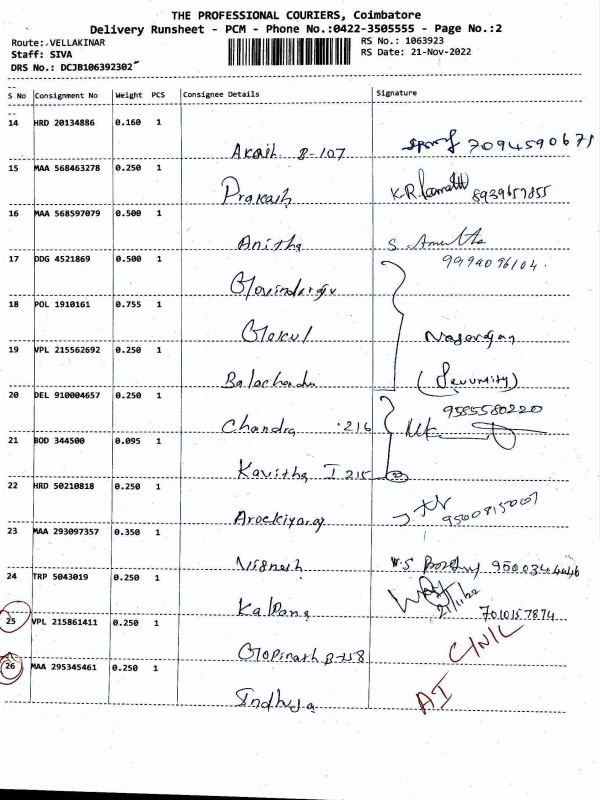 THE PROFESSIONAL COURIERS, Coimbatore
Delivery Runsheet - PCM - Phone No.:0422-3505555 - Page No.:2
Route:.VELLAKINAR RS No.: 1063923
Staff: SIVA RS Date: 21-Nov-2022
DRS No.: DCJB106392302
S No Consignment No Weight PCS Consignee Details Signature
14 HRD 20134886 0.160 1
Akash B-107 7094590671
15 MAA 568463278 0.250 1
Prakash K.R. 8939657855
16 MAA 568597079 0.500 1
Anitha S.
17 DDG 4521869 0.500 1 9994096164.
Govindaraju
18 POL 1910161 0.755 1
Gokul Nagarajan
19 VPL 215562692 0.250 1
Balachandra (Security)
20 DEL 910004657 0.250 1 9585580220
Chandra 216
21 BOD 344500 0.095 1
Kavitha I 215
22 HRD 50210818 0.250 1
Arockiyaraj 9500815007
23 MAA 293097357 0.350 1
Vignesh V.S 9500344446
24 TRP 5043019 0.250 1
Kalpana 21/11/22 7010157874
25 VPL 215861411 0.250 1
Gopinath B-758 C/NIL
26 MAA 295345461 0.250 1
Indhuja AI